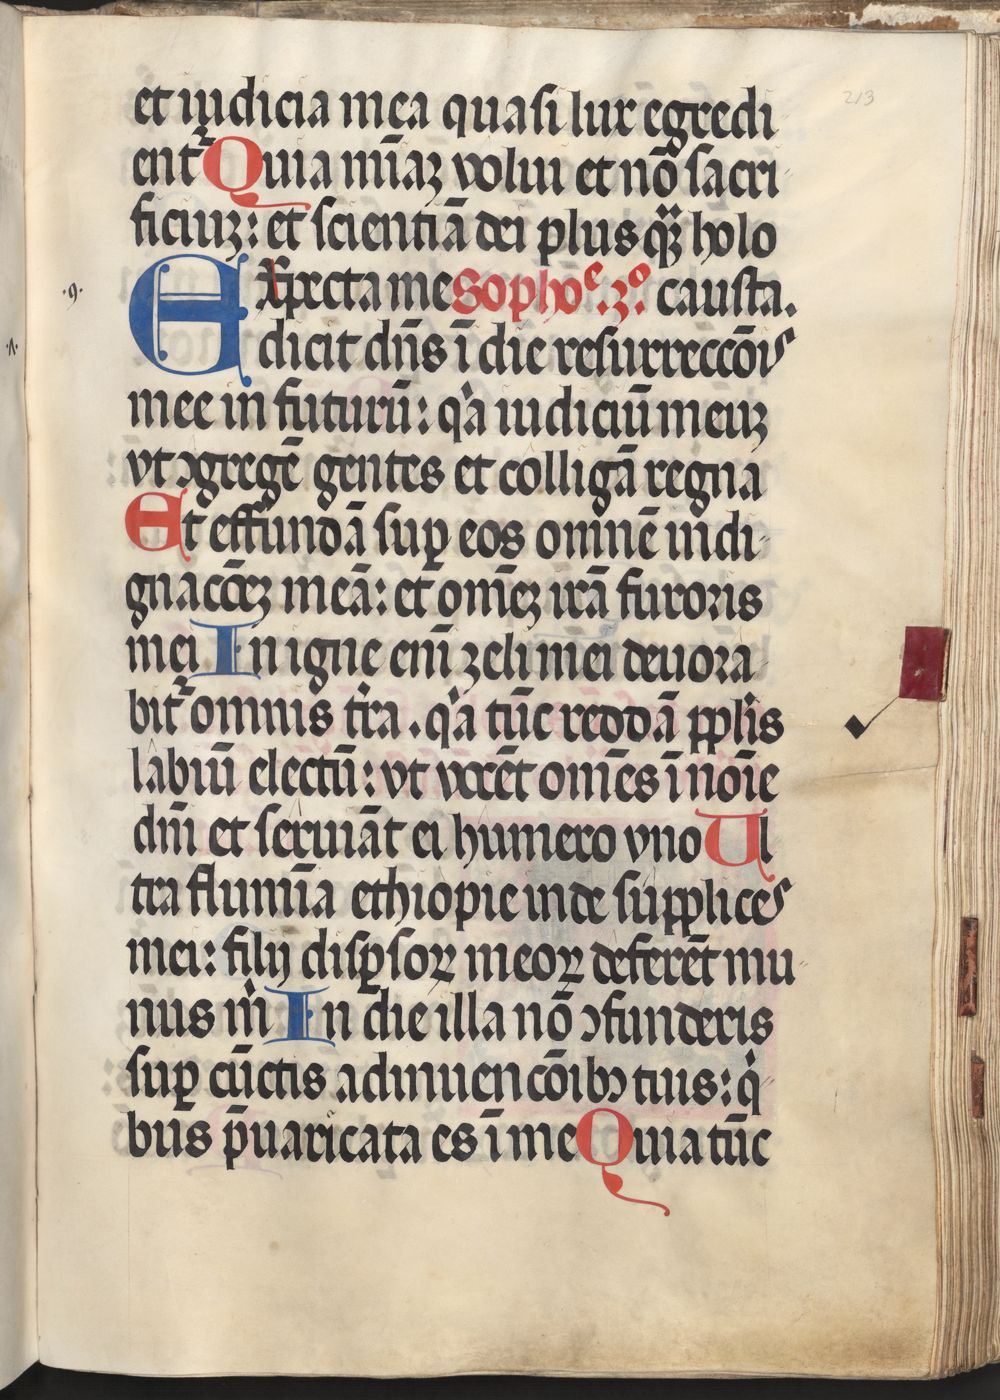 213
et iudicia mea quasi lux egredi
ent᷑ Quia mīaꝫ volui et nō sacri
ficiuꝫ: et scientiā dei plus qꝫ̈ holo
Expecta me Sophoᵉ.ꝫᵒ. causta.
dicit dn̄s ī die resurreccōis
mee in futurū: qͥa iudiciū meuꝫ
vt ↄgregē gentes et colligā regna
Et effundā suꝑ eos omnē indi
gnacōeꝫ meā: et om̄eꝫ irā furoris
mei In igne eni᷑ ꝫeli mei deuora
bit᷑ omnis t᷑ra. qͥa tūc reddā ppl̓is
labiū electū: vt vocēt om̄es ī noīe
dn̄i et seruiāt ei humero vno Ul
tra flumīa ethiopie inde supplices
mei: filij disꝑsoꝝ meoꝝ deferēt mu
nus mͥ In die illa nō ↄfunderis
suꝑ cūctis adinuencōibꝰ tuis: qͥ
bus p̄uaricata es ī me Quia tūc
.9.
.v.